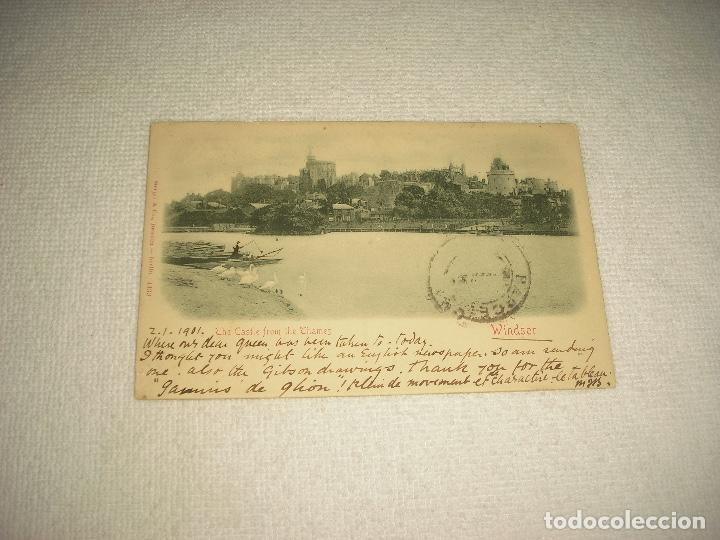 The Castle from the Thames
Windsor
2.1.1901.
Where our dear queen has been taken to. today.
I thought you might like an English newspaper. so am sending
one. also the Gibson drawings. Thank you for the
"gamins" de ! Plein de movement et charactre le tableau.
todocoleccion